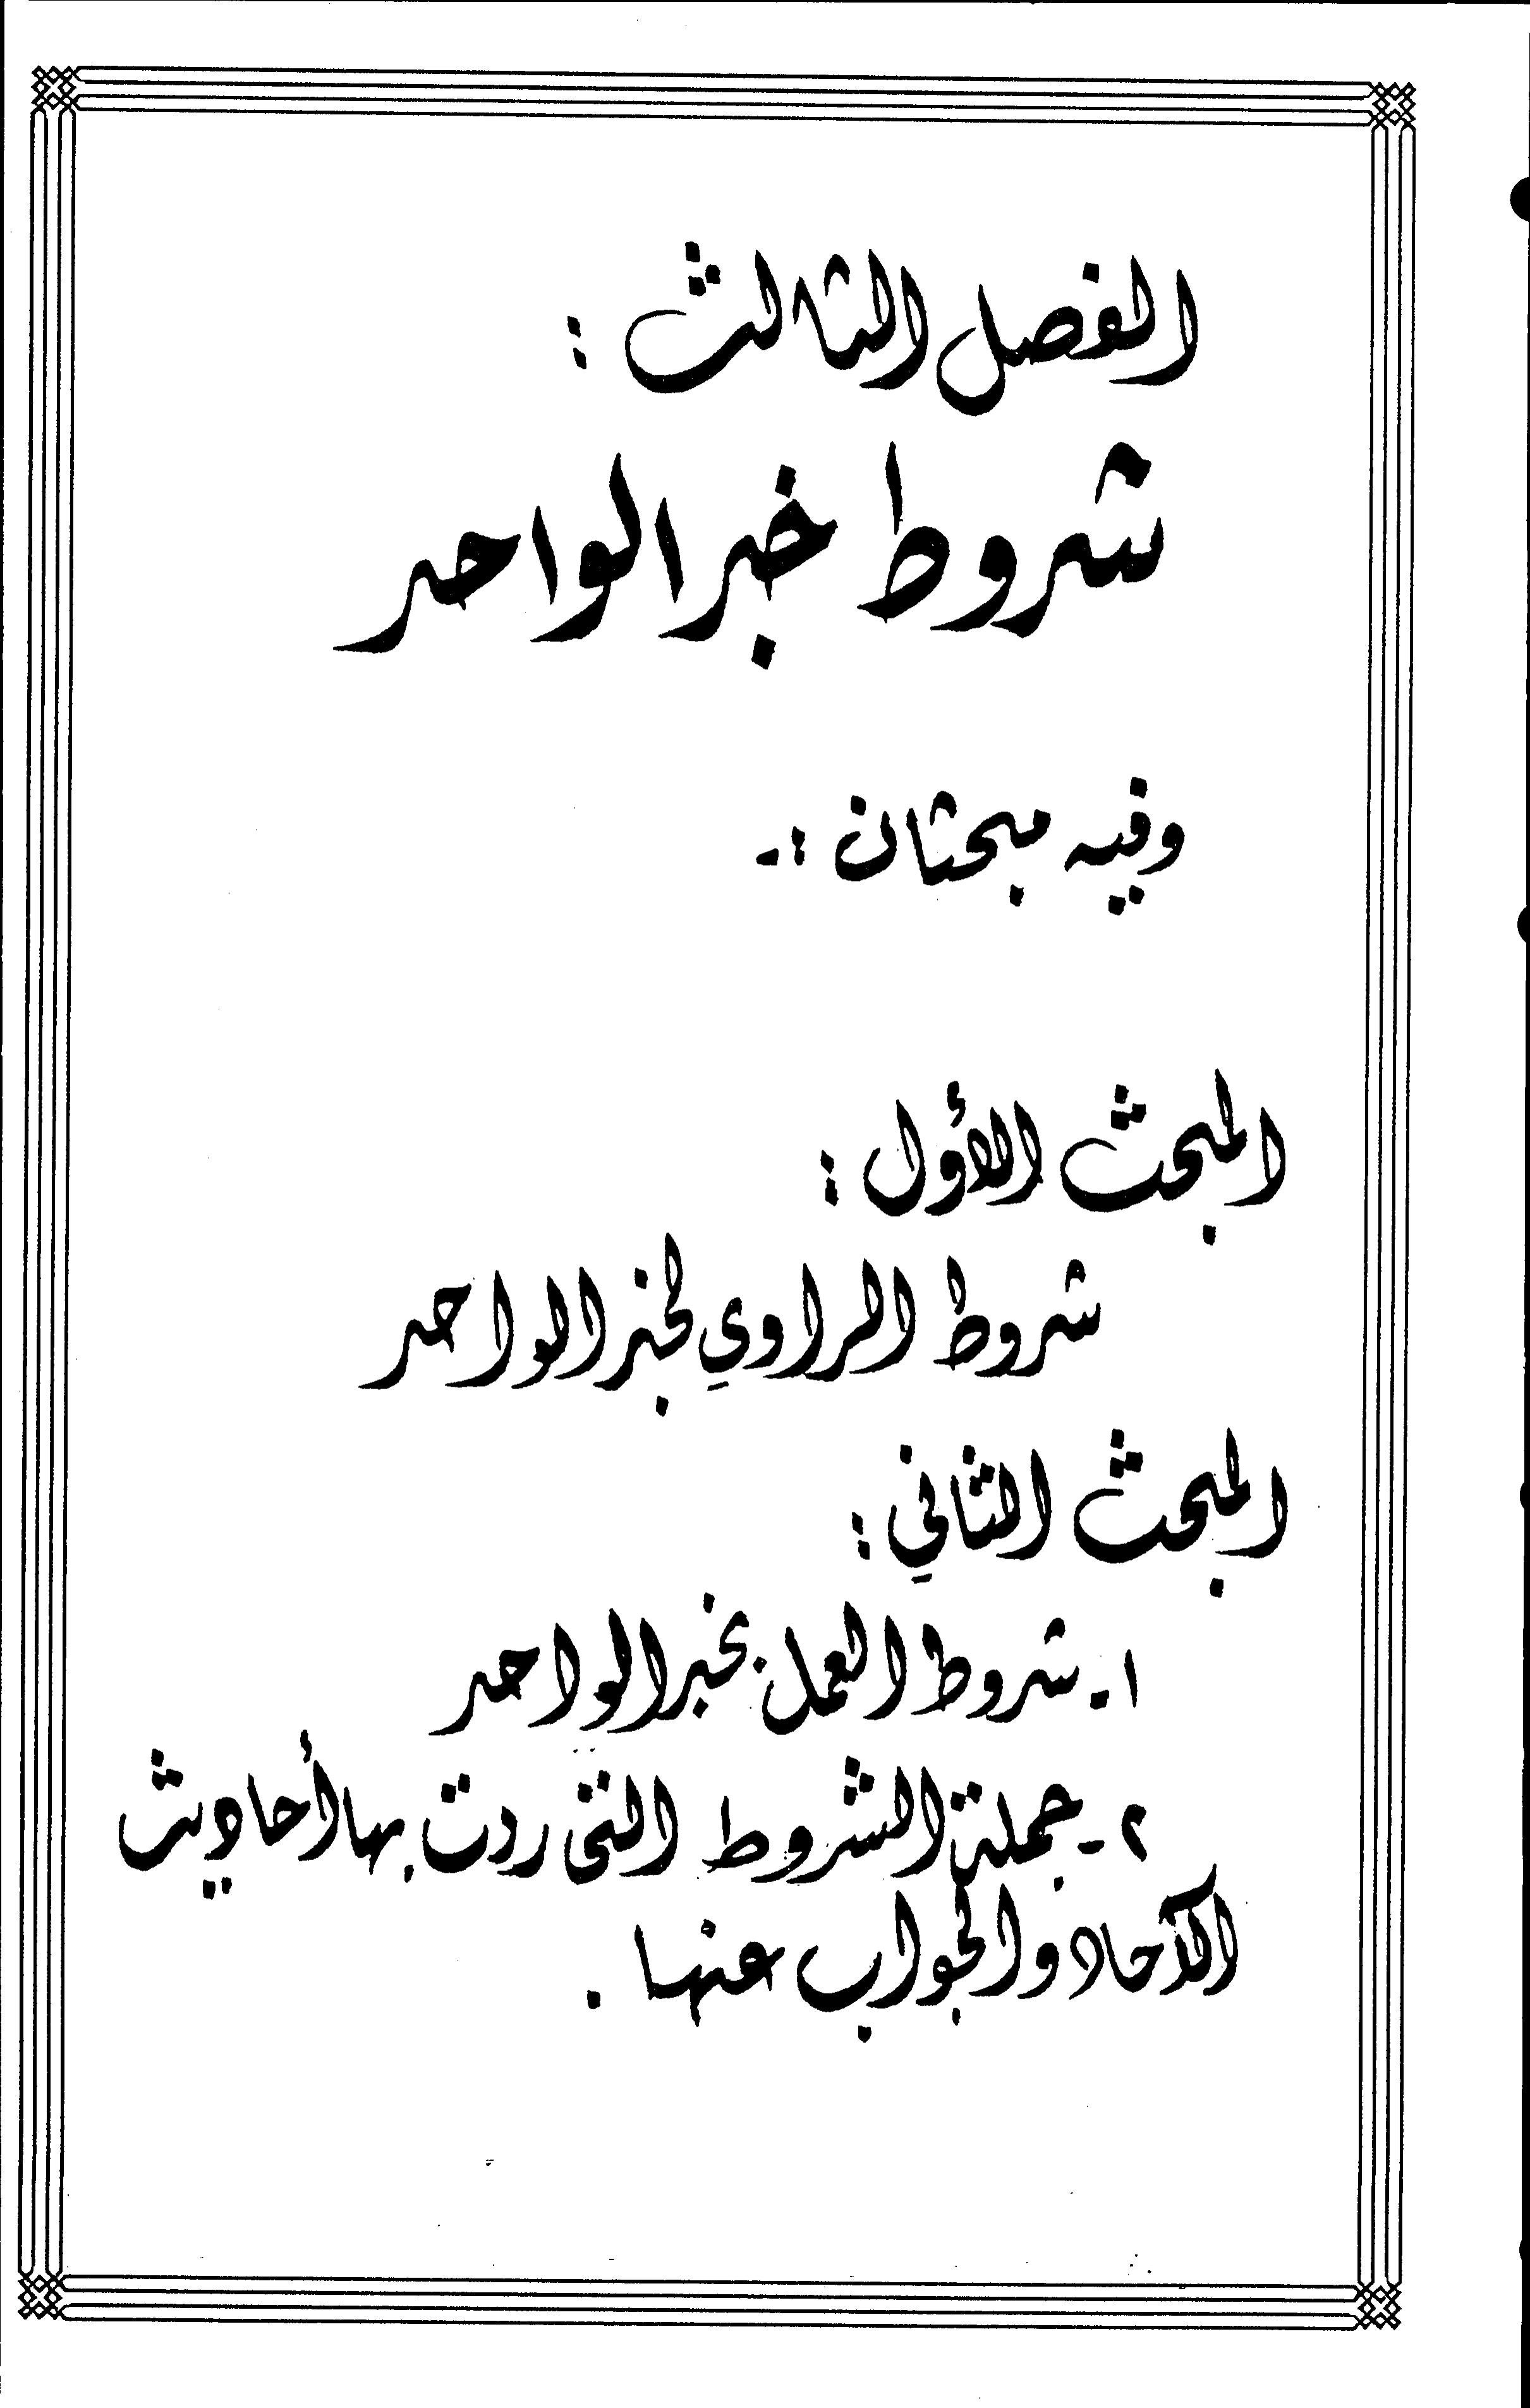 الفصل الثالث :
شروط خبر الواحد
وفيه مبحثان :-
المبحث الأول :
شروط الراوي لخبر الواحد
المبحث الثاني :
١- شروط العمل بخبر الواحد
٢- جملة الشروط التي ردت بها أحاديث
الآحاد والجواب عنها .